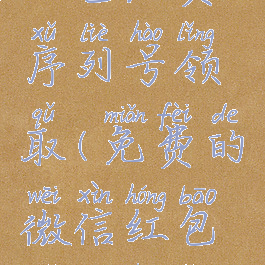 xù liè hào lǐng
序列号领
qǔ miǎn fèi de
取(免费的
wēi xìn hóng bāo
微信红包